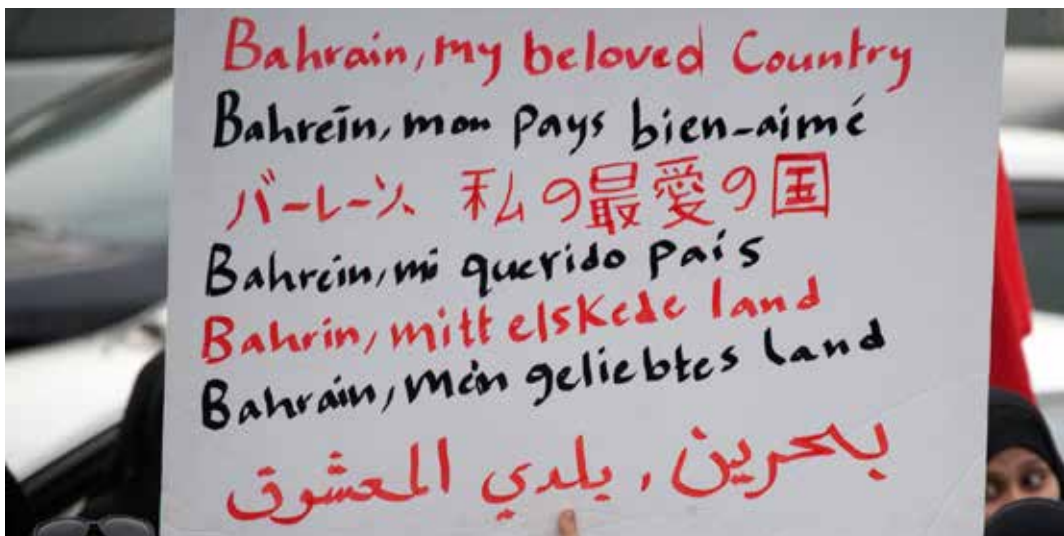 Bahrain, my beloved Country
Bahreïn, mon pays bien-aimé
バーレーン、私の最愛の国
Bahrein, mi querido país
Bahrin, mitt elskede land
Bahrain, Mein geliebtes land
بحرين, بلدي المعشوق